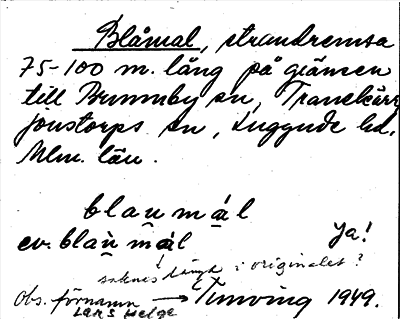 Blåmal, strandremsa
75-100 m. lång på gränsen
till Brunnby sn, Tranekärr
Jonstorps sn, Luggude hd.
Mlm. län.
blau mál
ev. blau mál
Ja!
saknas längd i originalet?
obs. förnamn → Tunving 1949.
Lars Helge